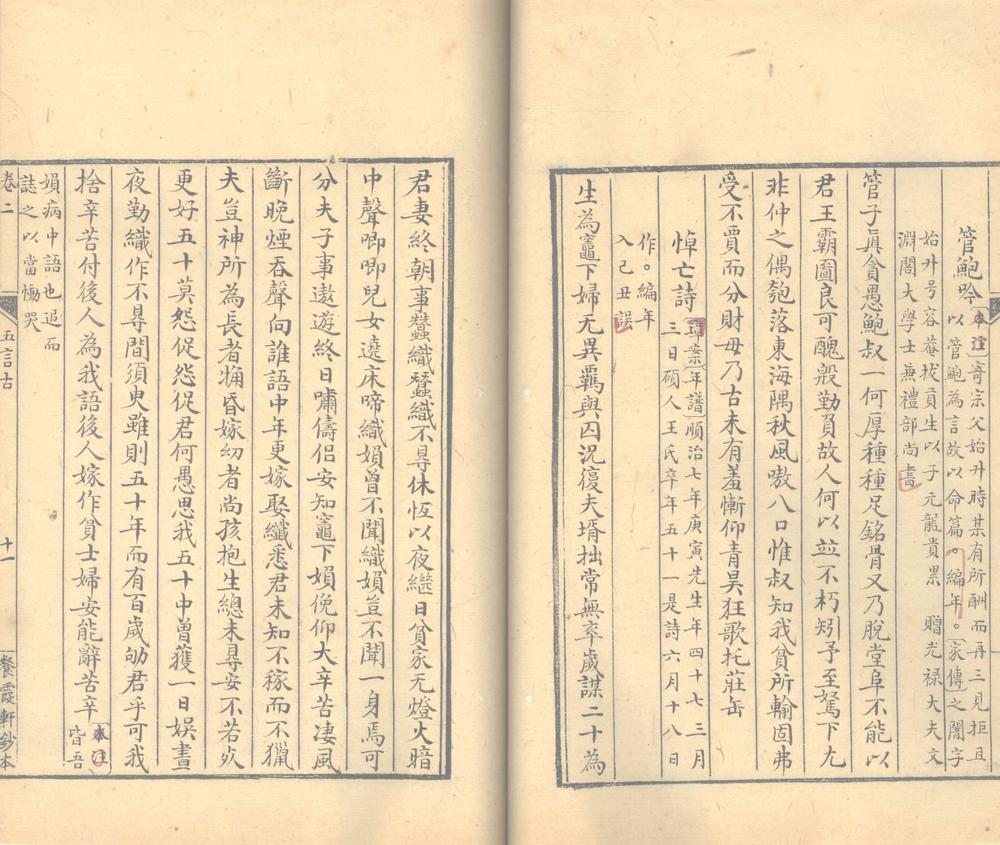 管鮑吟 本注 寄宗父始升時某有所酬而再三見拒且
以管鮑為言故以命篇 編年。家傳之闇字
始升号容菴拔貢生以子元龍貴累 贈光禄大夫文
淵閣大學士兼禮部尚書
管子眞貪愚鮑叔一何厚種種足銘骨又乃脫堂阜不能以
君王霸圖良可醜殷勤負故人何以並不朽矧予至駑下尢
非仲之偶匏落東海隅秋風嗷八口惟叔知我貧所輸固弗
受不賈而分財毋乃古未有羞慚仰青昊狂歌托莊缶
悼亡詩 章案年譜順治七年庚寅先生年四十七三月
三日碩人王氏卒年五十一是詩六月十八日
作。編年
入己丑誤
生為竈下婦无異羈與囚況復夫壻拙常無卒歲謀二十為
君妻終朝事蠶織蠶織不㝵休恆以夜繼日貧家无燈火暗
中聲唧唧兒女遶床啼織媍曾不聞織媍豈不聞一身焉可
分夫子事遨遊終日嘯儔侶安知竈下媍俛仰大辛苦淒風
斷晚煙吞聲向誰語中年更嫁娶纖悉君未知不稼而不獵
夫豈神所為長者㛰昏嫁幼者尚孩抱生總未㝵安不若㱥
更好五十莫怨促怨促君何愚思我五十中曾獲一日娛晝
夜勤織作不㝵間須臾雖則五十年而有百歲劬君乎可我
捨辛苦付後人為我語後人嫁作貧士婦安能辭苦辛 本注
皆吾
媍病中語也追而
誌之以當慟哭
卷二 五言古 十一 餐霞軒鈔本